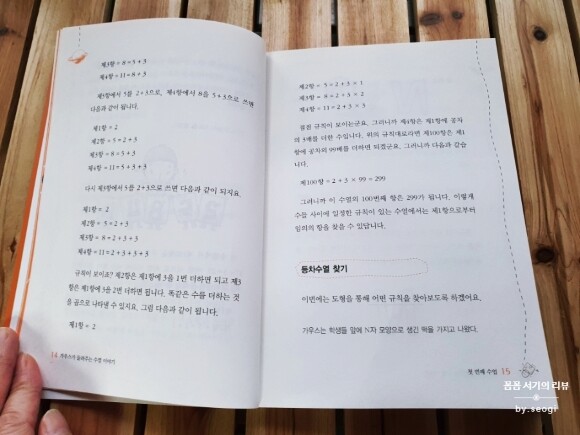 제3항 = 8 = 5 + 3
제4항 = 11 = 8 + 3
제3항에서 5를 2+3으로, 제4항에서 8을 5+3으로 쓰면
다음과 같이 됩니다.
제1항 = 2
제2항 = 5 = 2 + 3
제3항 = 8 = 5 + 3
제4항 = 11 = 5 + 3 + 3
다시 제3항에서 5를 2+3으로 쓰면 다음과 같이 되지요.
제1항 = 2
제2항 = 5 = 2 + 3
제3항 = 8 = 2 + 3 + 3
제4항 = 11 = 2 + 3 + 3 + 3
규칙이 보이죠? 제2항은 제1항에 3을 1번 더하면 되고 제3
항은 제1항에 3을 2번 더하면 됩니다. 똑같은 수를 더하는 것
을 곱으로 나타낼 수 있지요. 그럼 다음과 같이 됩니다.
제1항 = 2
14 가우스가 들려주는 수열 이야기
제2항 = 5 = 2 + 3 × 1
제3항 = 8 = 2 + 3 × 2
제4항 = 11 = 2 + 3 × 3
점점 규칙이 보이는군요. 그러니까 제4항은 제1항에 공차
의 3배를 더한 수입니다. 위의 규칙대로라면 제100항은 제1
항에 공차의 99배를 더하면 되겠군요. 그러니까 다음과 같습
니다.
제100항 = 2 + 3 × 99 = 299
그러니까 이 수열의 100번째 항은 299가 됩니다. 이렇게
수들 사이에 일정한 규칙이 있는 수열에서는 제1항으로부터
임의의 항을 찾을 수 있답니다.
등차수열 찾기
이번에는 도형을 통해 어떤 규칙을 찾아보도록 하겠어요.
가우스는 학생들 앞에 N자 모양으로 생긴 떡을 가지고 나왔다.
첫 번째 수업 15
폼폼 서기의 리뷰
by.seogi